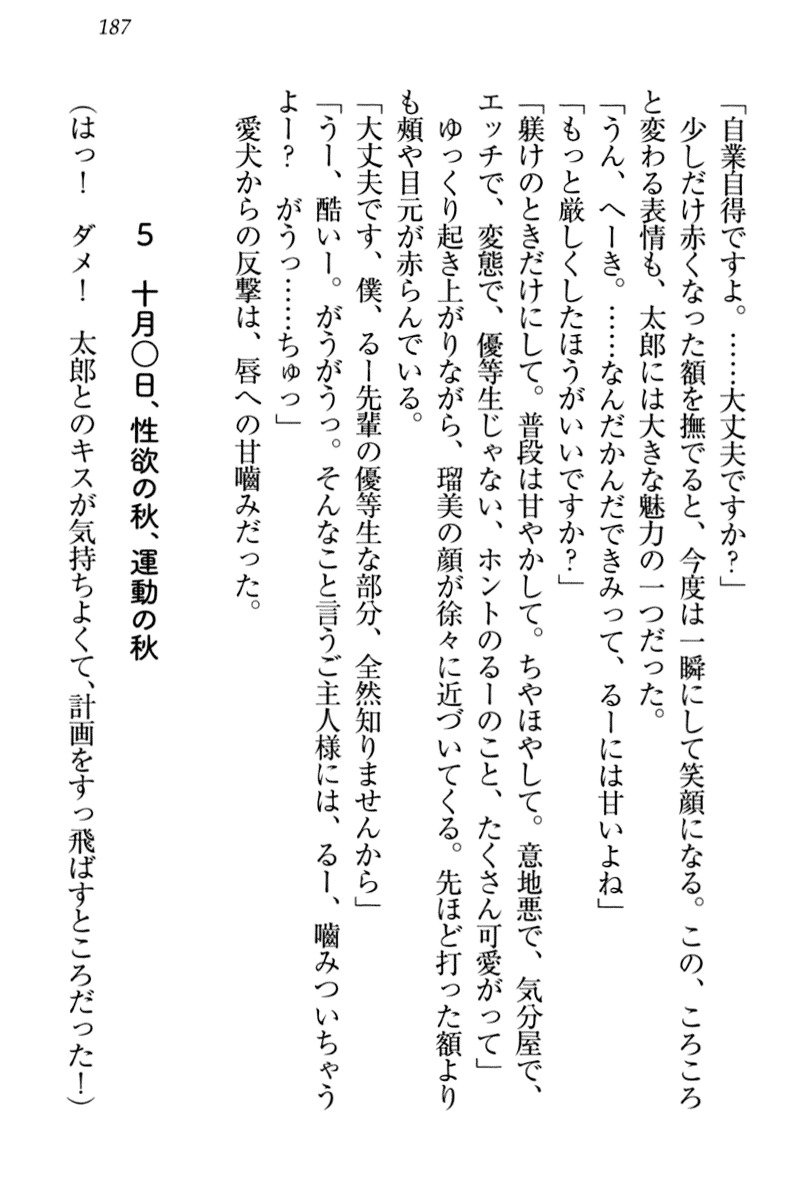 187
「自業自得ですよ。……大丈夫ですか？」
少しだけ赤くなった額を撫でると、今度は一瞬にして笑顔になる。この、ころころ
と変わる表情も、太郎には大きな魅力の一つだった。
「うん、へーき。……なんだかんだできみって、るーには甘いよね」
「もっと厳しくしたほうがいいですか？」
「躾けのときだけにして。普段は甘やかして。ちやほやして。意地悪で、気分屋で、
エッチで、変態で、優等生じゃない、ホントのるーのこと、たくさん可愛がって」
ゆっくり起き上がりながら、瑠美の顔が徐々に近づいてくる。先ほど打った額より
も頰や目元が赤らんでいる。
「大丈夫です、僕、るー先輩の優等生な部分、全然知りませんから」
「うー、酷いー。がうがうっ。そんなこと言うご主人様には、るー、嚙みついちゃう
よー？　がうっ……ちゅっ」
愛犬からの反撃は、唇への甘嚙みだった。
5　十月〇日、性欲の秋、運動の秋
（はっ！　ダメ！　太郎とのキスが気持ちよくて、計画をすっ飛ばすところだった！）